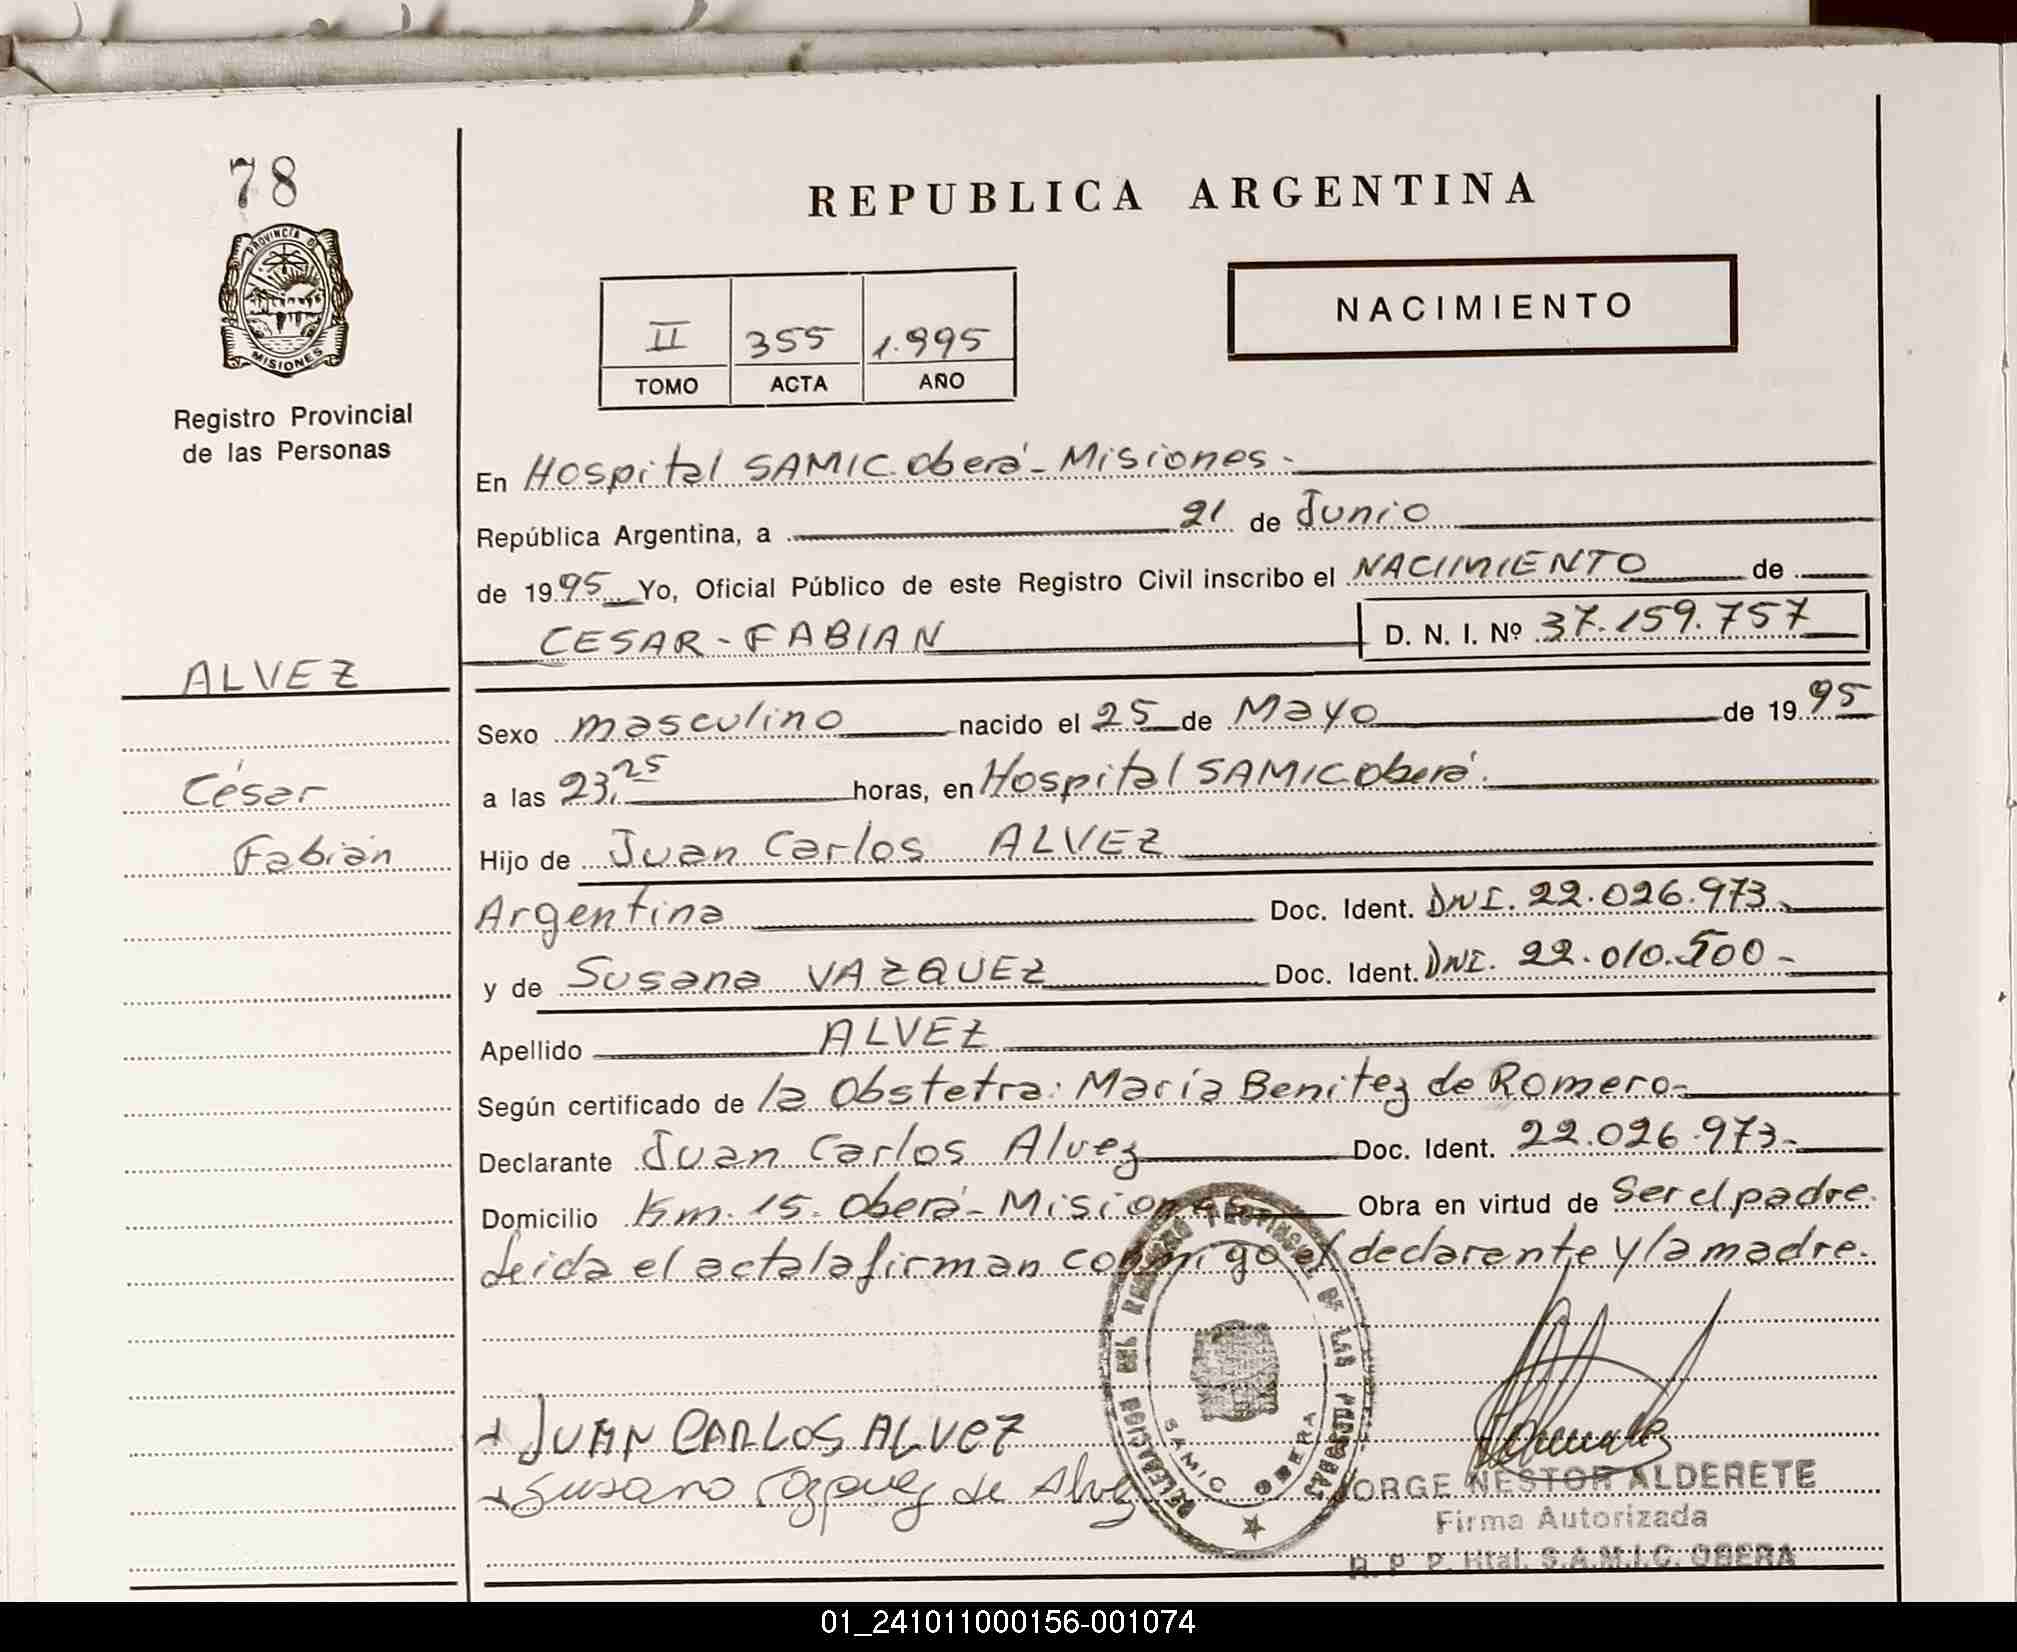 78
PROVINCIA DE
MISIONES
Registro Provincial
de las Personas
REPUBLICA ARGENTINA
NACIMIENTO
II 355 1.995
TOMO ACTA AÑO
En Hospital SAMIC. Oberá - Misiones -
República Argentina, a 21 de Junio
de 1995 Yo, Oficial Público de este Registro Civil inscribo el NACIMIENTO de
CESAR - FABIAN D. N. I. Nº 37.159.757
ALVEZ
César
Fabián
Sexo masculino nacido el 25 de Mayo de 1995
a las 23,25 horas, en Hospital SAMIC Oberá.
Hijo de Juan Carlos ALVEZ
Argentina Doc. Ident. DNI. 22.026.973.
y de Susana VAZQUEZ Doc. Ident. DNI. 22.010.500 -
Apellido ALVEZ
Según certificado de la Obstetra: María Benitez de Romero -
Declarante Juan Carlos Alvez Doc. Ident. 22.026.973 -
Domicilio Km. 15. Oberá - Misiones Obra en virtud de Ser el padre.
Leida el acta la firman conmigo el declarante y la madre.
DELEGACION DEL REGISTRO PROVINCIAL DE LAS PERSONAS
SAMIC OBERA
+ JUAN CARLOS ALVEZ
+ Susana Vazquez de Alvez
JORGE NESTOR ALDERETE
Firma Autorizada
R. P. P. Htal. S.A.M.I.C. OBERA
01_241011000156-001074